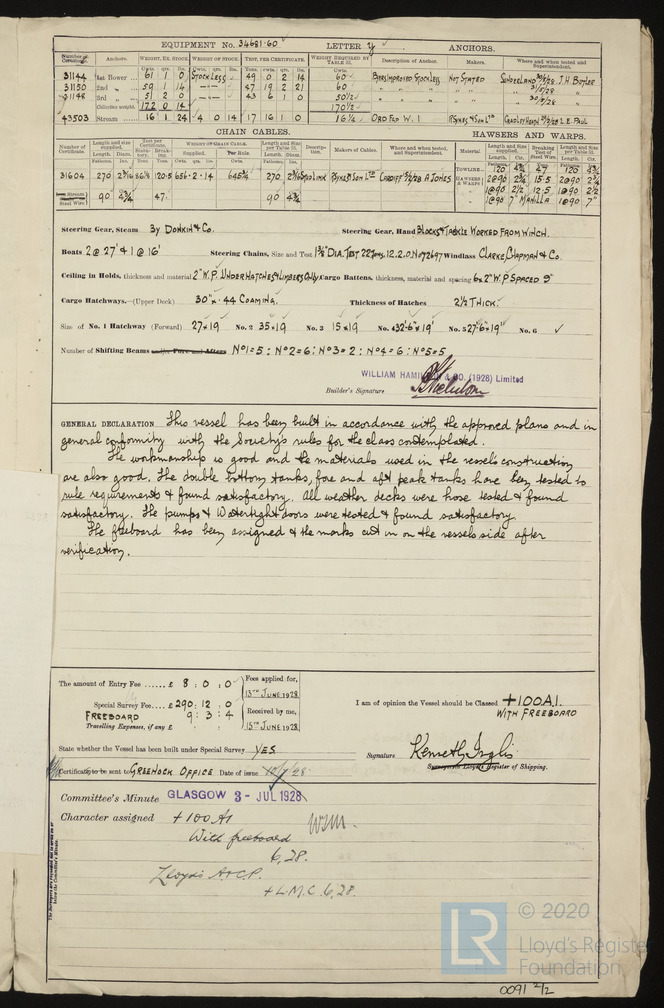 EQUIPMENT No. 34681.60 LETTER y ANCHORS.
Number of Certificate. Anchors. WEIGHT, EX. STOCK. WEIGHT OF STOCK. TEST, PER CERTIFICATE. WEIGHT REQUIRED BY TABLE 31. Description of Anchor. Makers. Where and when tested and Superintendent.
Cwts. qrs. lbs. Cwts. qrs. lbs. Tons. cwts. qrs. lbs. Cwts.
31144 1st Bower 61 1 0 STOCKLESS 49 0 2 14 60 BYERS IMPROVED STOCKLESS NOT STATED SUNDERLAND J.H. BUTLER
31150 2nd " 59 1 14 47 19 2 21 60
31148 3rd " 51 2 0 43 6 1 0 50½
Collective weight. 172 0 14 170½
43503 Stream 16 1 24 4 0 14 17 16 1 0 16¼ ORD FLD W.I. L.E. PAUL
CHAIN CABLES. HAWSERS AND WARPS.
Number of Certificate. Length and size supplied. Test per Certificate. WEIGHT OF CHAIN CABLE. Length and size per Table 31. Description. Makers of Cables. Where and when tested, and Superintendent. Material Length and Size supplied. Breaking Test of Steel Wire. Length and Size per Table 31.
31604 270 120.5 656.2.14 645¾ 270 STUD LINK CARDIFF A JONES
TOWLINE 120 4¾ 47 120 4¾
HAWSERS & WARPS 2@90 2¾ 15.5 2@90 2¾
1@90 2½ 12.5 1@90 2½
1@90 7" MANILLA 1@90 7"
Steel Wire 90 4¾ 47 90 4¾
Steering Gear, Steam by DONKIN & Co. Steering Gear, Hand BLOCKS & TACKLE WORKED FROM WINCH.
Boats 2 @ 27' & 1 @ 16' Steering Chains, Size and Test DIA. TEST 12.2.0. No 72697 Windlass CLARKE, CHAPMAN & Co.
Ceiling in Holds, thickness and material 2" W.P. UNDER HATCHES & LIMBERS ONLY Cargo Battens, thickness, material and spacing 6x2" W.P SPACED 9"
Cargo Hatchways.—(Upper Deck) 30" x .44 COAMING. Thickness of Hatches 2½ THICK.
Size of No. 1 Hatchway (Forward) 27x19 No. 2 35x19 No. 3 15x19 No. 4 32'6"x19' No. 5 27'6"x19' No. 6 ✓
Number of Shifting Beams and/or Fore and Afters No1=5: No2=6: No3=2: No4=6: No5=5
WILLIAM HAMILTON & CO. (1928) Limited
Builder's Signature
GENERAL DECLARATION This vessel has been built in accordance with the approved plans and in
general conformity with the Society's rules for the class contemplated.
The workmanship is good and the materials used in the vessels construction
are also good. The double bottom tanks, fore and aft peak tanks have been tested to
rule requirements & found satisfactory. All weather decks were hose tested & found
satisfactory. The pumps & Watertight doors were tested & found satisfactory.
The freeboard has been assigned & the marks cut in on the vessels side after
verification.
The amount of Entry Fee ...... £ 8 : 0 : 0
Special Survey Fee .... £ 290 : 12 : 0
FREEBOARD 9 : 3 : 4
Travelling Expenses, if any £
Fees applied for,
13TH JUNE 1928
Received by me,
15TH JUNE 1928
I am of opinion the Vessel should be Classed +100A1.
WITH FREEBOARD
State whether the Vessel has been built under Special Survey YES
Signature Kenneth Inglis
Surveyor to Lloyd's Register of Shipping.
Certificate to be sent to GREENOCK OFFICE Date of issue
Committee's Minute GLASGOW 3 - JUL 1928
Character assigned +100 A1
With freeboard
6,28.
Lloyd's A&CP.
+ L.M.C. 6,28.
© 2020
LR
Lloyd's Register
Foundation
0091 2/2